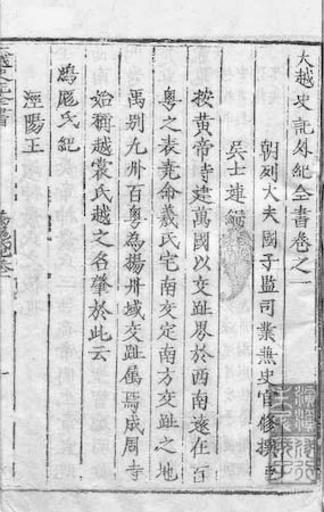 大越史記外紀全書卷之一
朝列大夫國子監司業兼史官修撰臣
吳士連編
按黃帝時建萬國以交趾界於西南遠在百
粵之表堯命羲氏宅南交定南方交趾之地
禹別九州百粵為揚州域交趾屬焉成周時
始稱越裳氏越之名肇於此云
鴻厖氏紀
涇陽王